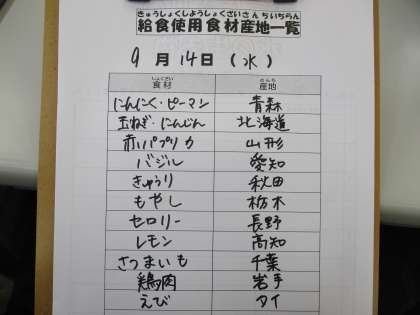 きゅうしょくしようしょくざいさんちいちらん
給食使用食材産地一覧
9月14日(水)
しょくざい さんち
食材 産地
にんにく・ピーマン 青森
玉ねぎ・にんじん 北海道
赤パプリカ 山形
バジル 愛知
きゅうり 秋田
もやし 栃木
セロリー 長野
レモン 高知
さつまいも 千葉
鶏肉 岩手
えび タイ